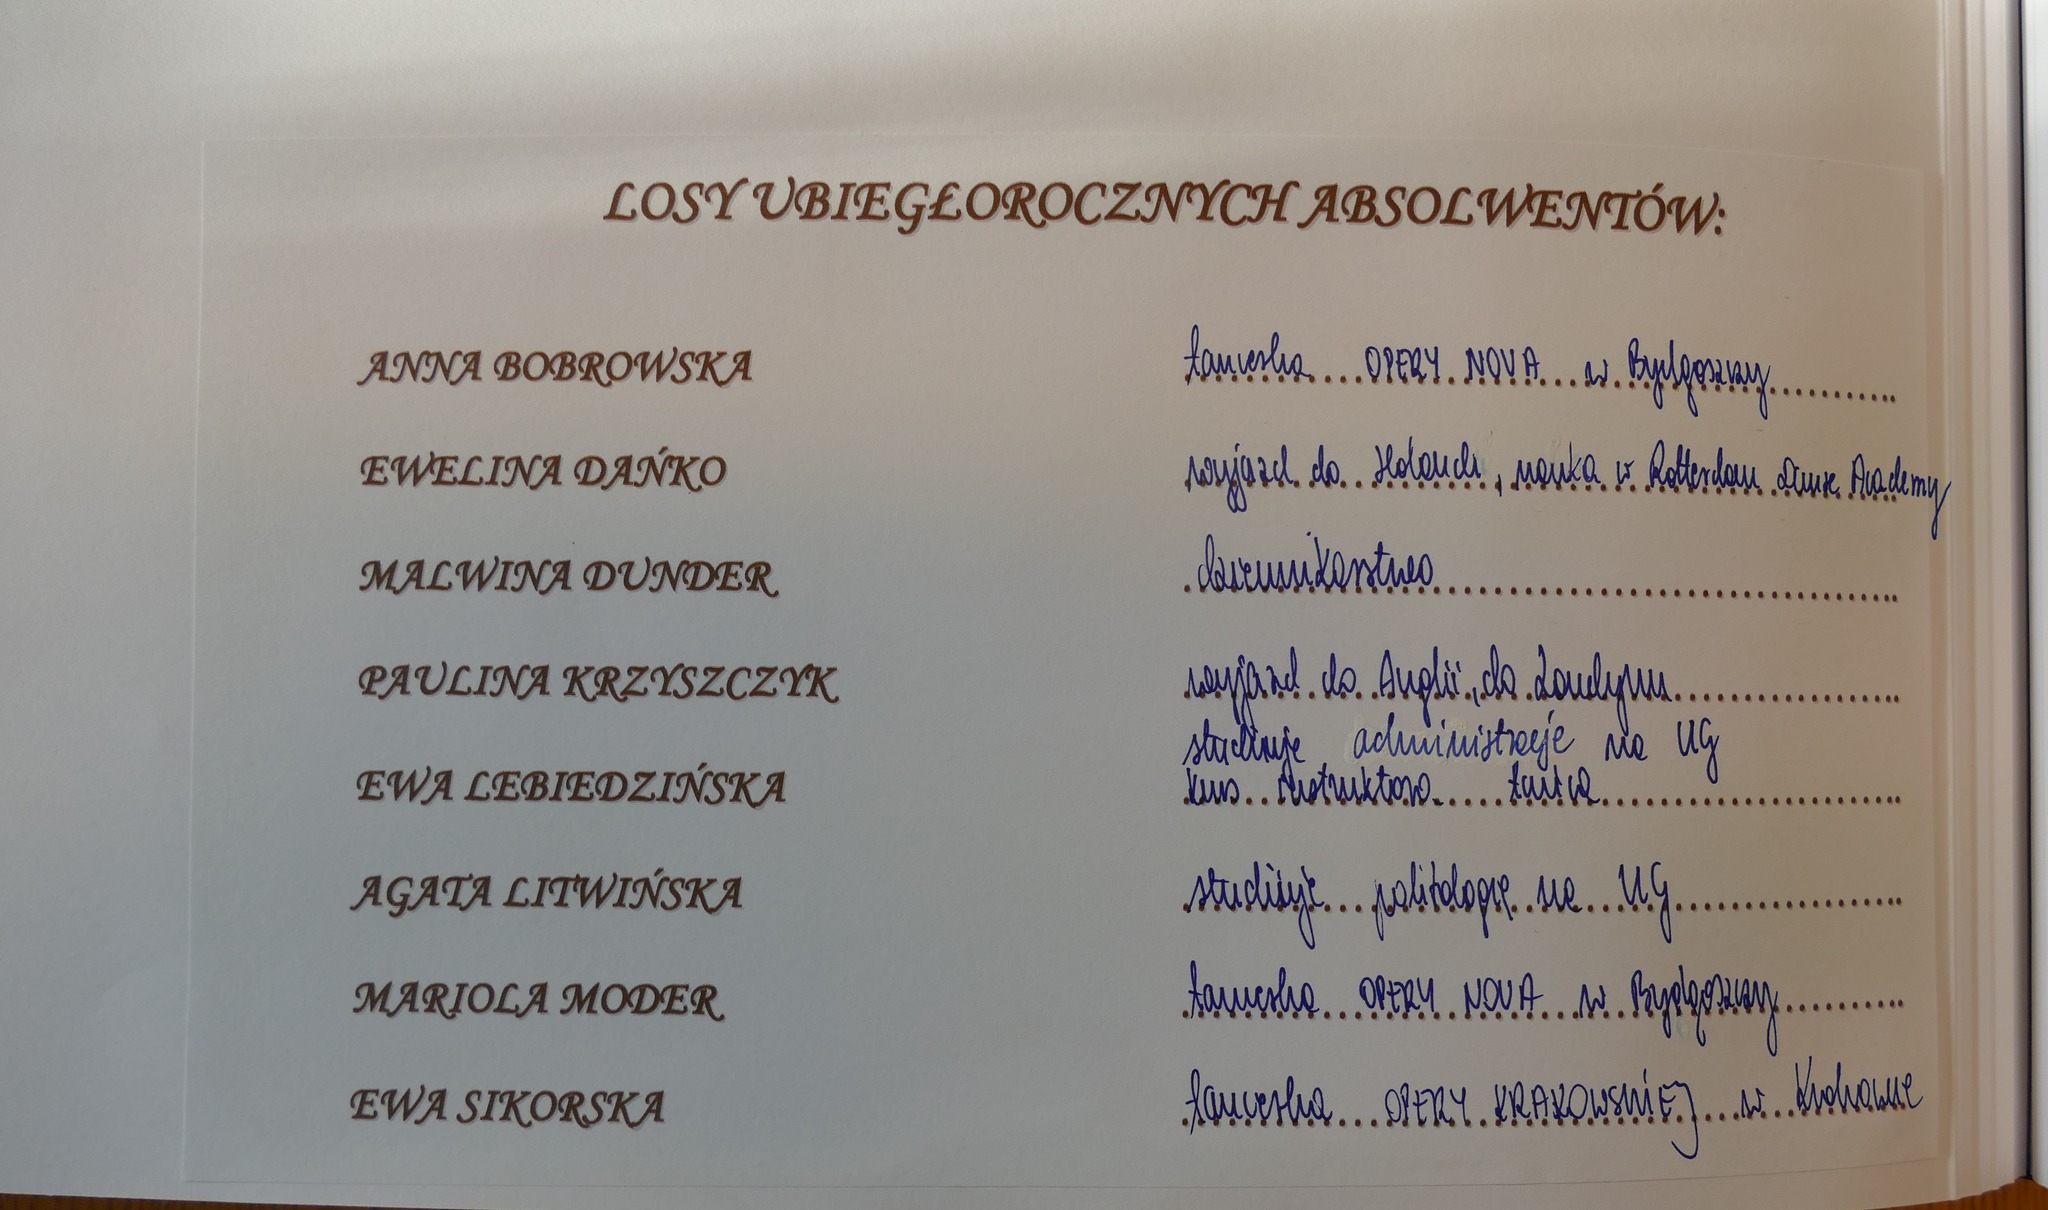 LOSY UBIEGŁOROCZNYCH ABSOLWENTÓW:
ANNA BOBROWSKA tancerka OPERY NOVA w Bydgoszczy
EWELINA DAŃKO wyjazd do Holandii, nauka w Rotterdam Dance Academy
MALWINA DUNDER dziennikarstwo
PAULINA KRZYSZCZYK wyjazd do Anglii, do Londynu
studiuje administrację na UG
EWA LEBIEDZIŃSKA kurs instruktora tańca
AGATA LITWIŃSKA studiuje politologię na UG
MARIOLA MODER tancerka OPERY NOVA w Bydgoszczy
EWA SIKORSKA tancerka OPERY KRAKOWSKIEJ w Krakowie